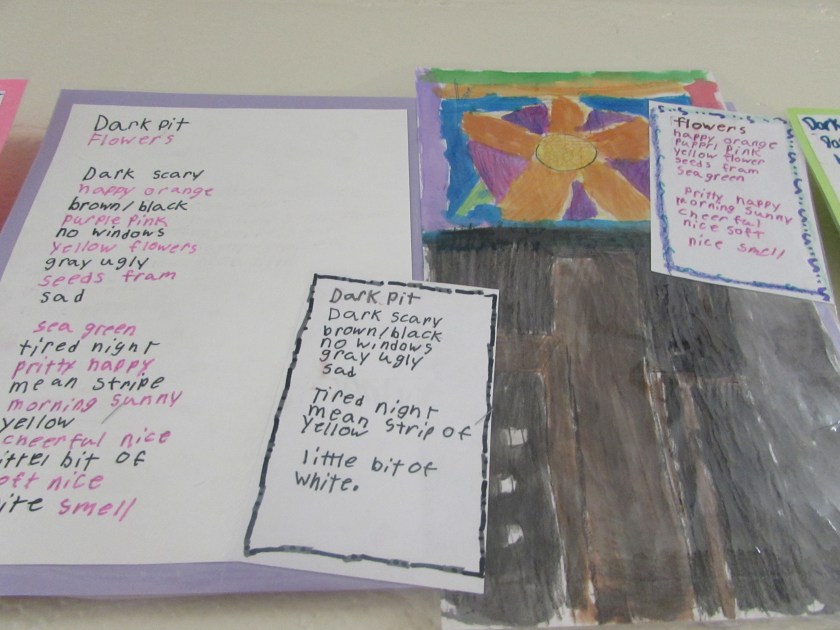 Dark pit
Flowers
Dark scary
happy orange
brown/black
purple pink
no windows
yellow flowers
gray ugly
seeds fram
sad
sea green
tired night
pritty happy
mean stripe
morning sunny
yellow
cheerful nice
bit of
nice
smell
Dark pit
Dark scary
brown/black
no windows
gray ugly
sad
Tired night
mean
yellow strip of
little bit of
white.
flowers
happy orange
pink
yellow flower
seeds fram
Sea green
pritty happy
morning sunny
cheerful
nice soft
nice smell
Dark